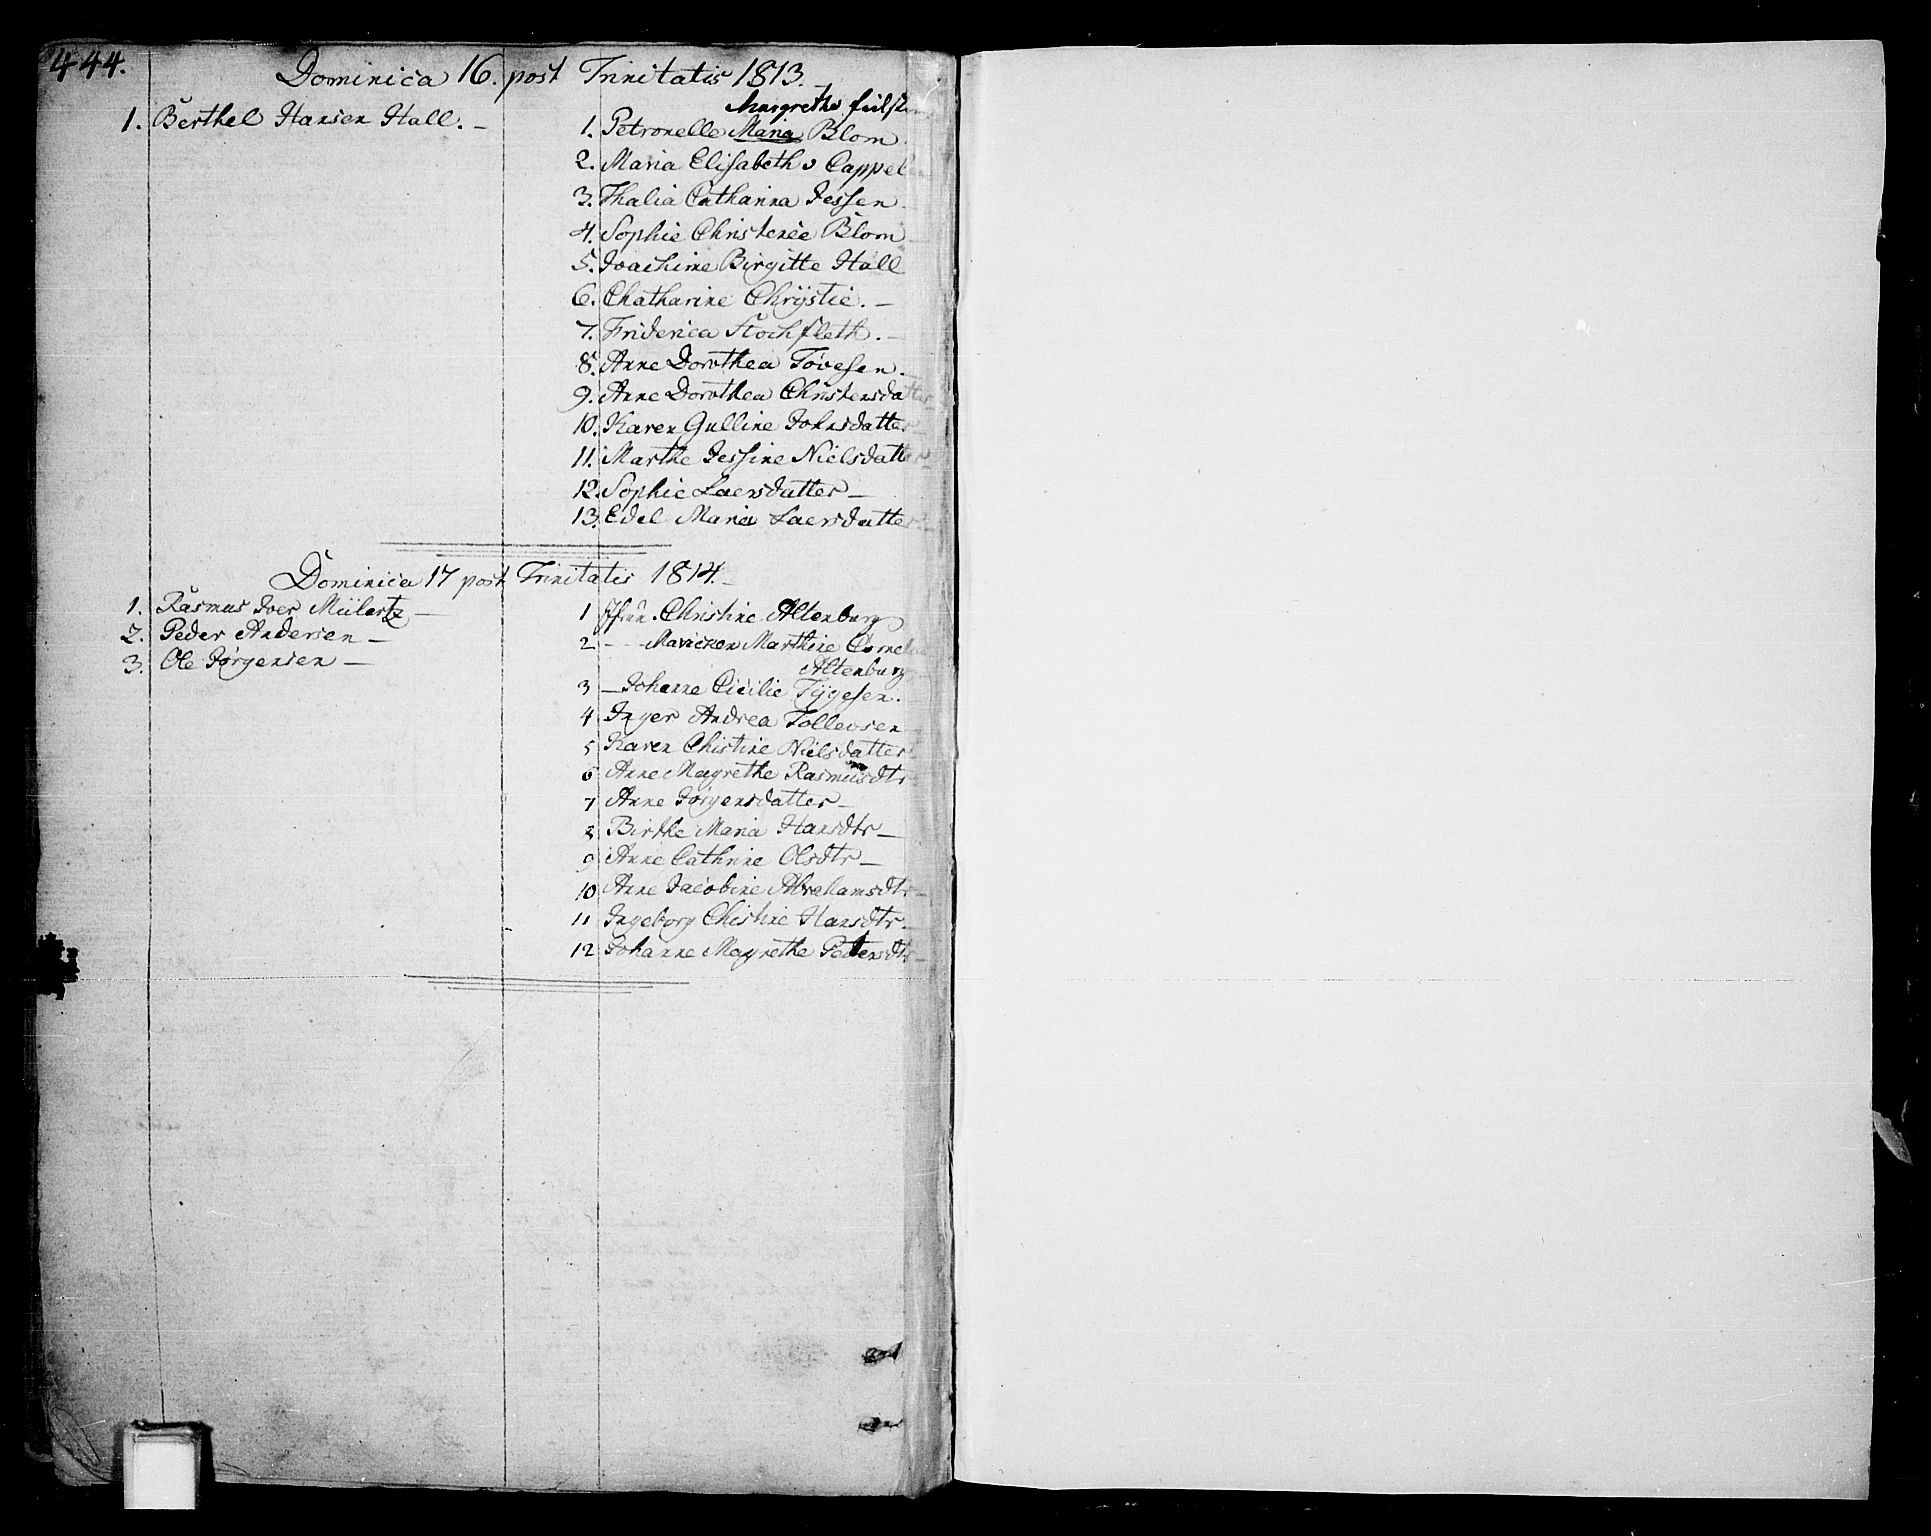 444.
Dominica 16. post Trinitatis 1813.
1. Berthel Hansen Hall. -
Margrethe
1. Petronelle Maria Blom.
2. Maria Elisabeth v Cappelen
3. Thalia Catharina Jessen -
4. Sophie Christence Blom -
5. Joachime Birgitte Hall
6. Chatharine Chrÿstie. -
7. Friderica Stochfleth. -
8. Anne Dorothea Tovesen. -
9. Anne Dorothea Christensdatter
10. Karen Gulline Johnsdatter -
11. Marthe Jessine Nielsdatter -
12. Sophie Laersdatter -
13. Edel Maria Laersdatter -
Dominica 17 post Trinitatis 1814. -
1. Rasmus Joer Mülertz -
2. Peder Andersen -
3. Ole Jørgensen -
1 Jfru. Christine Altenburg
2 - - Maricken Marthine Cornelia
Altenburg -
3 - Johanne Cicilie Tÿgesen.
4 Inger Andrea Tollevsen
5 Karen Chistine Nielsdatter
6 Anne Magrethe Rasmusdtr
7 Anne Jørgensdatter -
8 Birthe Maria Hansdtr -
9 Anne Cathrine Olsdtr -
10 Anne Jacobine Abrahamsdtr -
11 Ingeborg Chistine Hansdtr. -
12 Johanne Magrethe Pedersdtr -